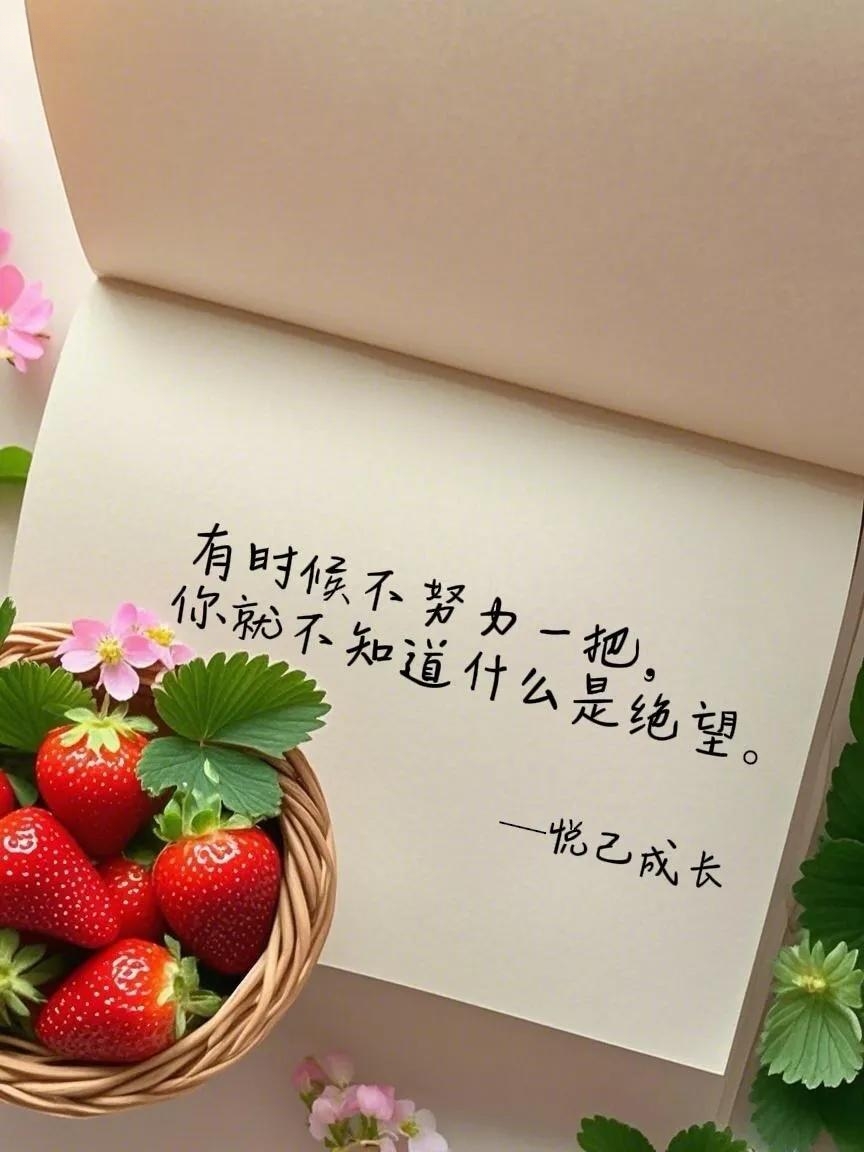 有时候不努力一把，
你就不知道什么是绝望。
—悦己成长